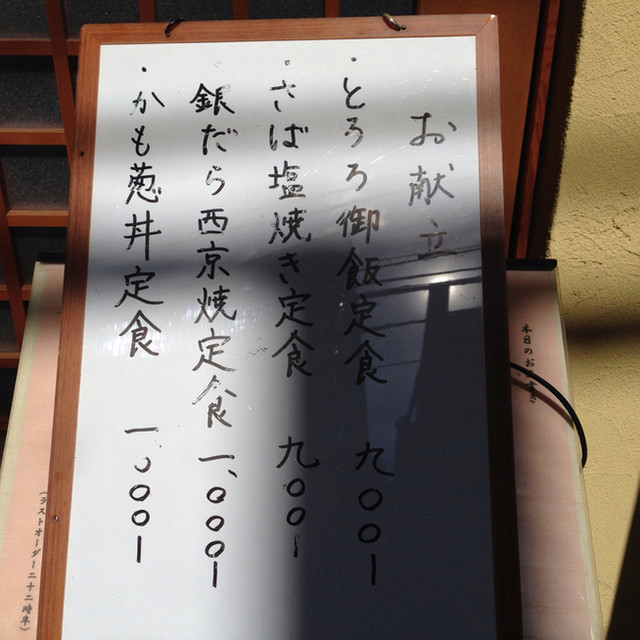 お献立
・とろろ御飯定食 九〇〇ー
・さば塩焼き定食 九〇〇ー
銀だら西京焼定食 一、〇〇〇ー
・かも葱丼定食 一、〇〇〇ー
本日のお
(ラストオーダー二十二時半)